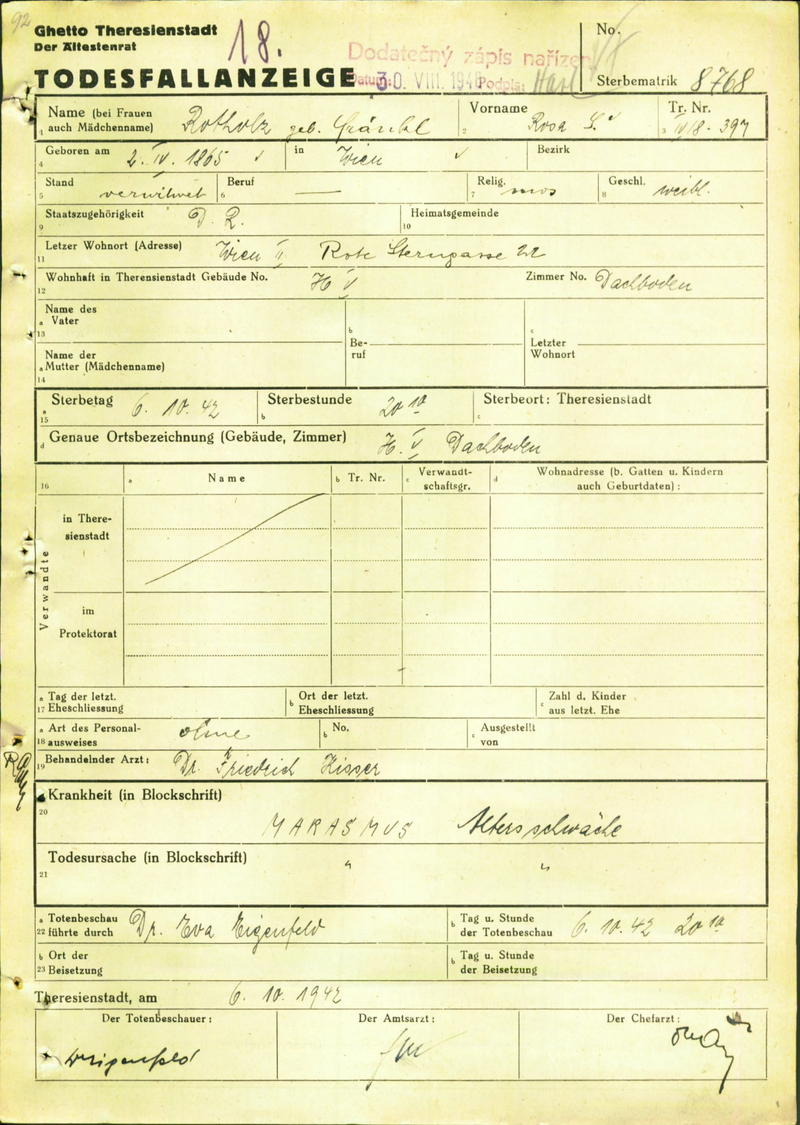 92
Ghetto Theresienstadt
Der Ältestenrat
18.
No.
Dodatečný zápis nařízen
TODESFALLANZEIGE
Datum: 30. VIII. 194 Podpis:
Sterbematrik 8768
Name (bei Frauen auch Mädchenname) Rotholz geb. Fränkl
Vorname Rosa S.
Tr. Nr. IV/8 - 397
Geboren am 2. IV. 1865 in Wien Bezirk
Stand verwitwet Beruf — Relig. mos Geschl. weibl.
Staatszugehörigkeit D. R. Heimatsgemeinde
Letzer Wohnort (Adresse) Wien II Rote Sterngasse 22
Wohnhaft in Theresienstadt Gebäude No. H V Zimmer No. Dachboden
Name des Vater
Beruf
Letzter Wohnort
Name der Mutter (Mädchenname)
Sterbetag 6. 10. 42 Sterbestunde 20 10 Sterbeort: Theresienstadt
Genaue Ortsbezeichnung (Gebäude, Zimmer) H. V Dachboden
Name Tr. Nr. Verwandtschaftsgr. Wohnadresse (b. Gatten u. Kindern auch Geburtdaten) :
Verwandte
in Theresienstadt
im Protektorat
Tag der letzt. Eheschliessung Ort der letzt. Eheschliessung Zahl d. Kinder aus letzt. Ehe
Art des Personalausweises ohne No. Ausgestellt von
Behandelnder Arzt: Dr. Friedrich Kisser
Krankheit (in Blockschrift)
MARASMUS Altersschwäche
Todesursache (in Blockschrift) " "
Totenbeschau führte durch Dr. Eva Eigenfeld Tag u. Stunde der Totenbeschau 6. 10. 42 20 10
Ort der Beisetzung Tag u. Stunde der Beisetzung
Theresienstadt, am 6. 10. 1942
Der Totenbeschauer: Der Amtsarzt: Der Chefarzt: